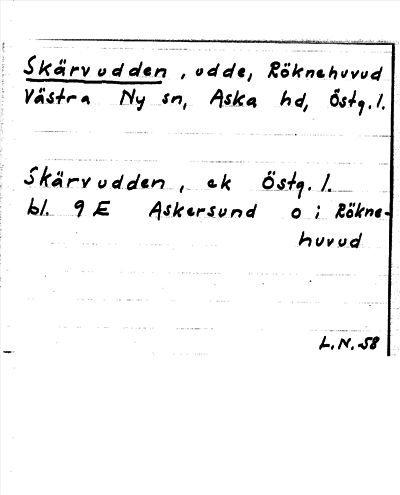 Skärvudden, udde, Röknehuvud
Västra Ny sn, Aska hd, Östg. l.
Skärvudden, ek Östg. l.
bl. 9 E Askersund o i Rökne-
huvud
L.N. 58